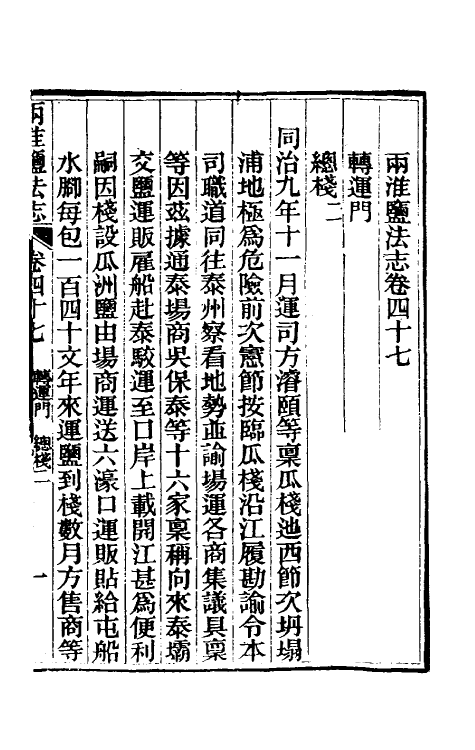 兩淮鹽法志卷四十七
轉運門
總棧二
同治九年十一月運司方濬頤等稟瓜棧迆西節次坍塌
浦地極爲危險前次憲節按臨瓜棧沿江履勘諭令本
司職道同往泰州察看地勢並諭場運各商集議具稟
等因茲據通泰場商吳保泰等十六家稟稱向來泰壩
交鹽運販雇船赴泰駮運至口岸上載開江甚爲便利
嗣因棧設瓜洲鹽由場商運送六濠口運販貼給屯船
水腳每包一百四十文年來運鹽到棧數月方售商等
兩淮鹽法志 卷四十七 轉運門 總棧二 一